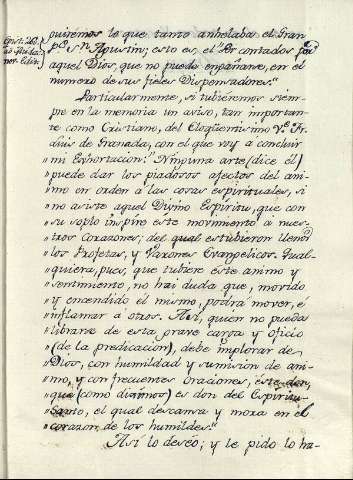 quiremos lo que tanto anhelaba el Gran
Pe. Sn. Agustin; esto es, el ser contados por
aquel Dios, que no puede engañarse, en el
numero de sus fieles Dispensadores."
Particularmente, si tubièremos siem-
pre en la memoria un aviso, tan importan-
te como Cristiano, del Eloquentissimo Ve. Fr.
Luis de Granada, con el que voy a concluir
mi Exhortacion: "Ninguna arte (dice èl)
"puede dar los piadosos afectos del ani-
"mo en orden à las cosas espirituales, si
"no asiste aquel Divino Espiritu, que con
"su soplo inspire este movimiento à nues-
"tros Corazones; del qual estubieron llenos
"los Profetas, y Varones Evangelicos. Qual-
"quiera, pues, que tubiere este animo y
"sentimiento, no hai duda que, movido
"y encendido èl mismo, podrà mover, è
"inflamar a otros. Asi, quien no pueda
"librarse de esta grave carga y oficio
"(de la predicaciòn), debe implorar de
"Dios, con humildad y sumision de ani-
"mo, y con frecuentes oraciones, èste don,
"que (como diximos) es don del Espiritu-
"Santo, el qual descansa y mora en el
"corazon de los humildes."
Asi lo deseo; y le pido lo ha-